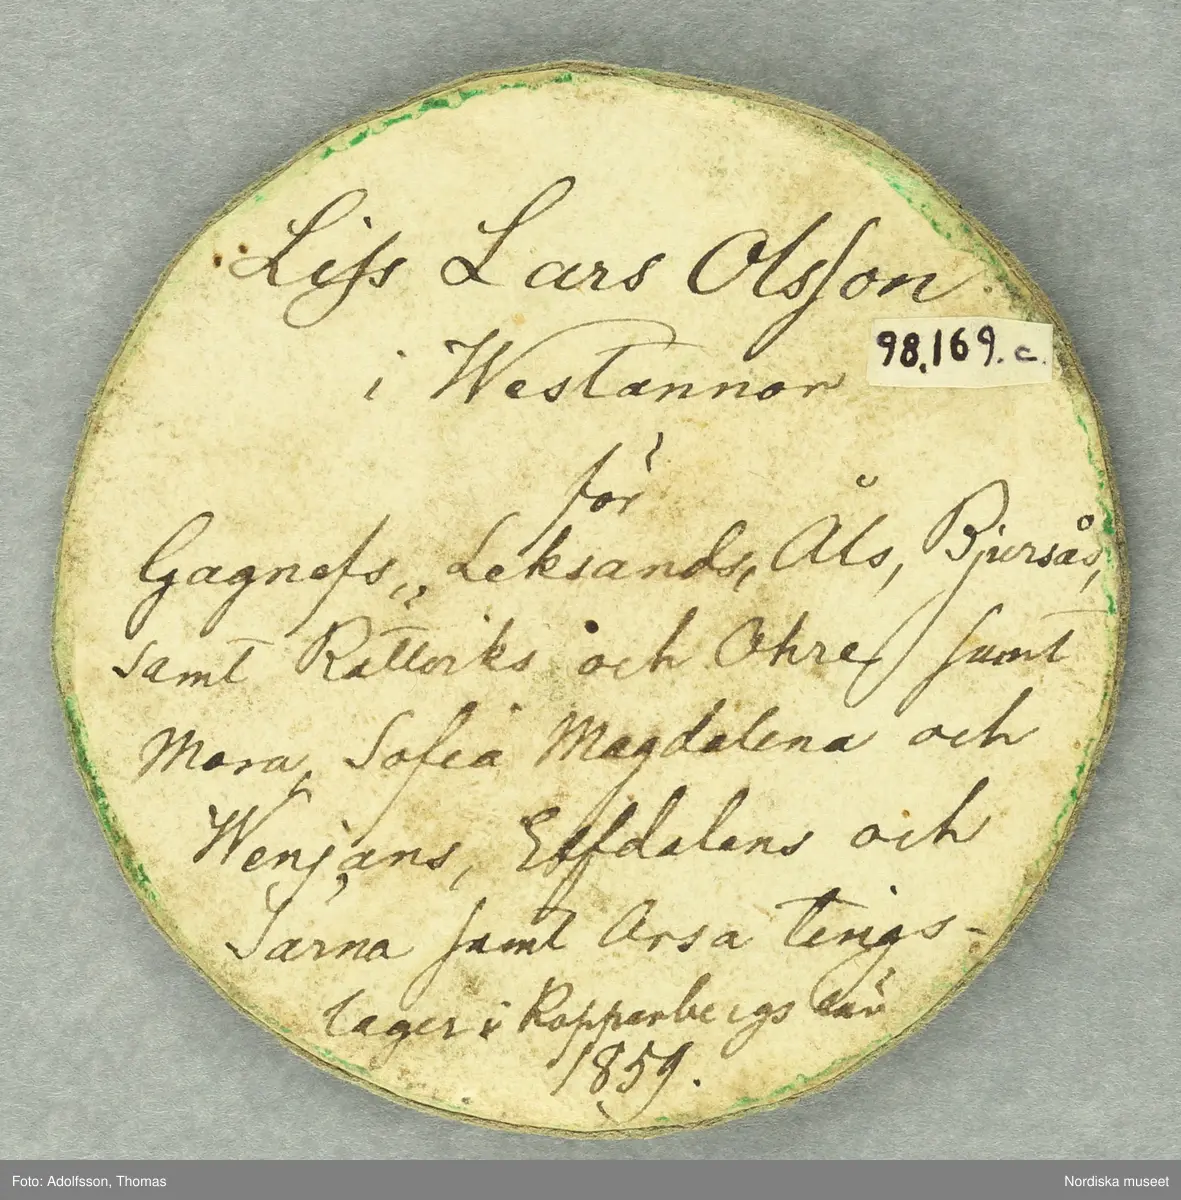 Liss Lars Olsson
98,169.c.
i Westannor
för
Gagnefs, Leksands, Åls, Bjursås,
samt Rättviks och Ohre, samt
Mora, Sofia Magdalena och
Wenjans, Elfdalens och
Särna samt Orsa tings-
lager i Kopparbergs län
1859.
Foto: Adolfsson, Thomas
Nordiska museet